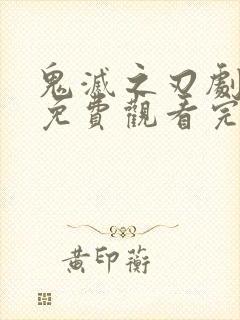 鬼滅之刃劇
免費觀看完
黃印蘅